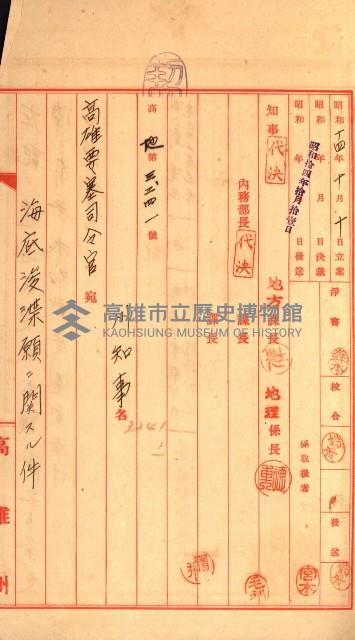 昭和十四年十月十日立案 淨書 校合 發送
昭和 年 月 日決裁
昭和拾四年拾月拾壹日
昭和 年 月 日發送
係取扱者 宮本
知事 代決
地方課長 地理係長
內務部長 代決
課長
課長
高地第三二四一號
知事名
3241
高雄要塞司令官 宛
海底浚渫願ニ関スル件
高雄州
高雄市立歷史博物館
KAOHSIUNG MUSEUM OF HISTORY